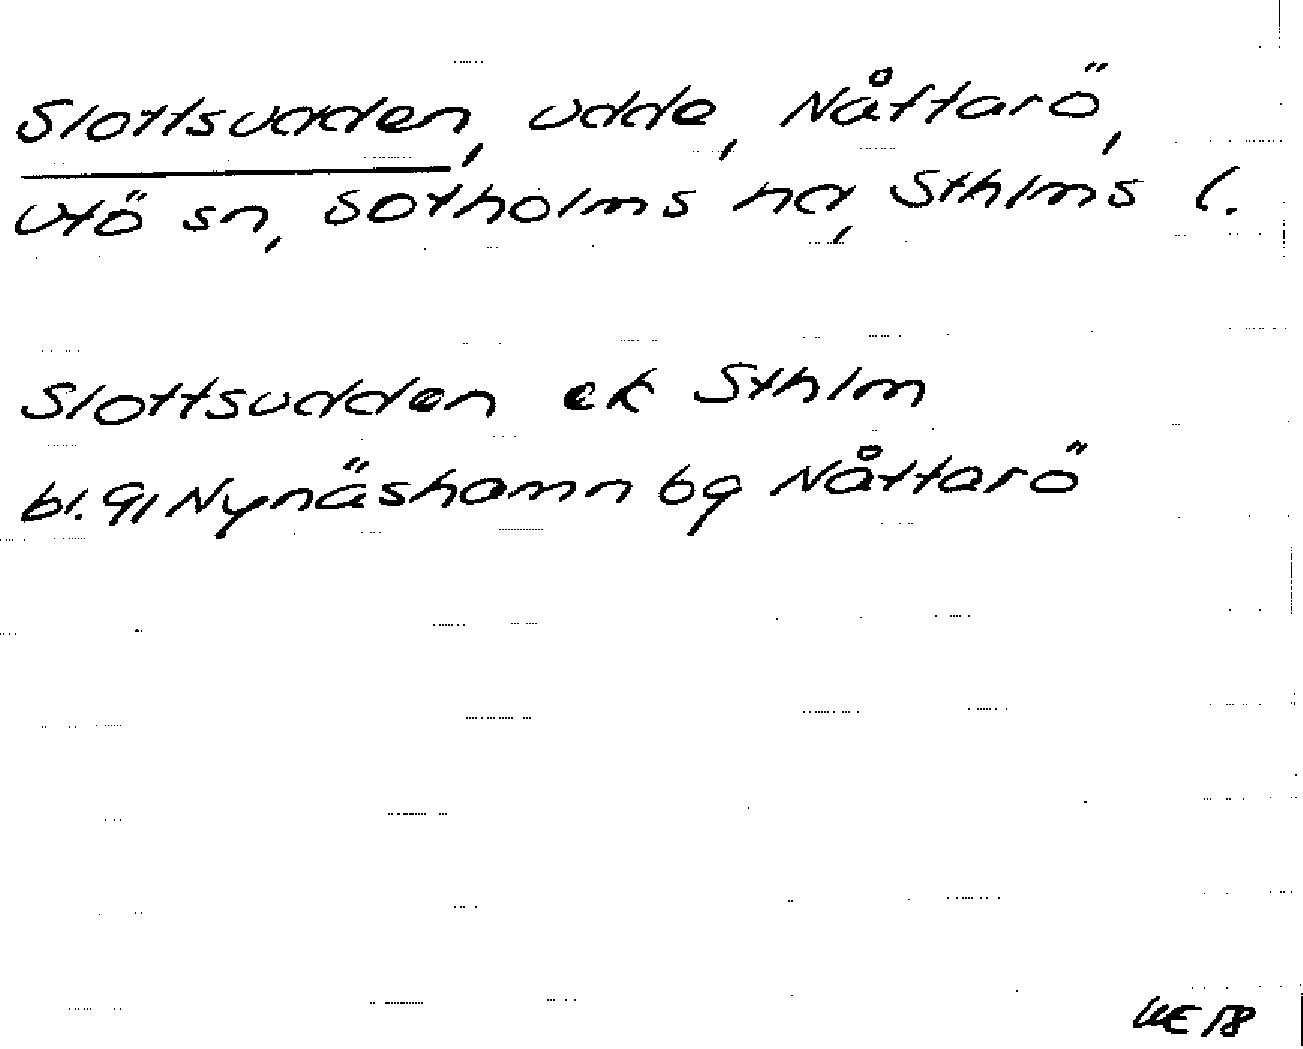 Slottsudden, udde, Nåttarö,
Utö sn, Sotholms hd, Sthlms l.
Slottsudden ek Sthlm
bl. 91 Nynäshamn bg Nåttarö